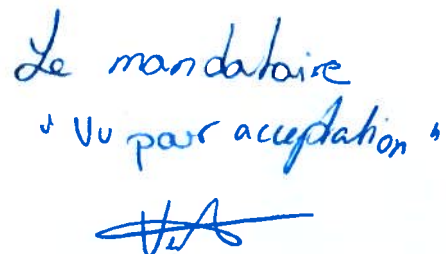 Le mandataire
" Vu pour acceptation "